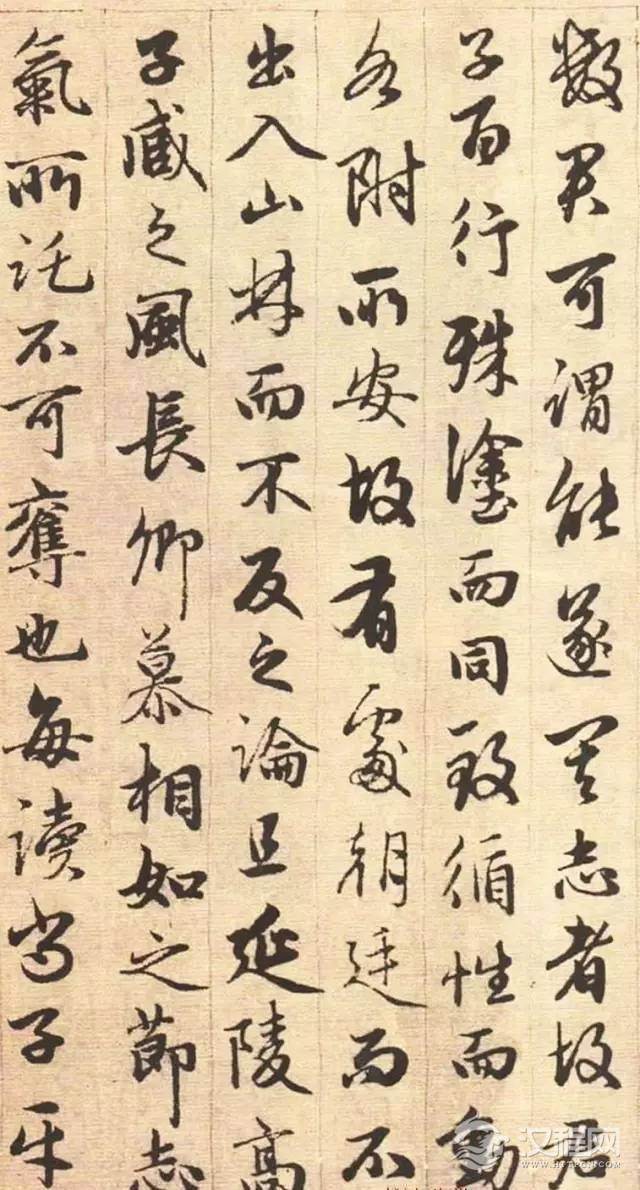 數君可謂能遂其志者故君
子百行殊塗而同致循性而動
各附所安故有處朝廷而不
出入山林而不反之論且延陵高
子臧之風長卿慕相如之節志
氣所託不可奪也每讀尚子平
汉程网
HTTPCN.COM